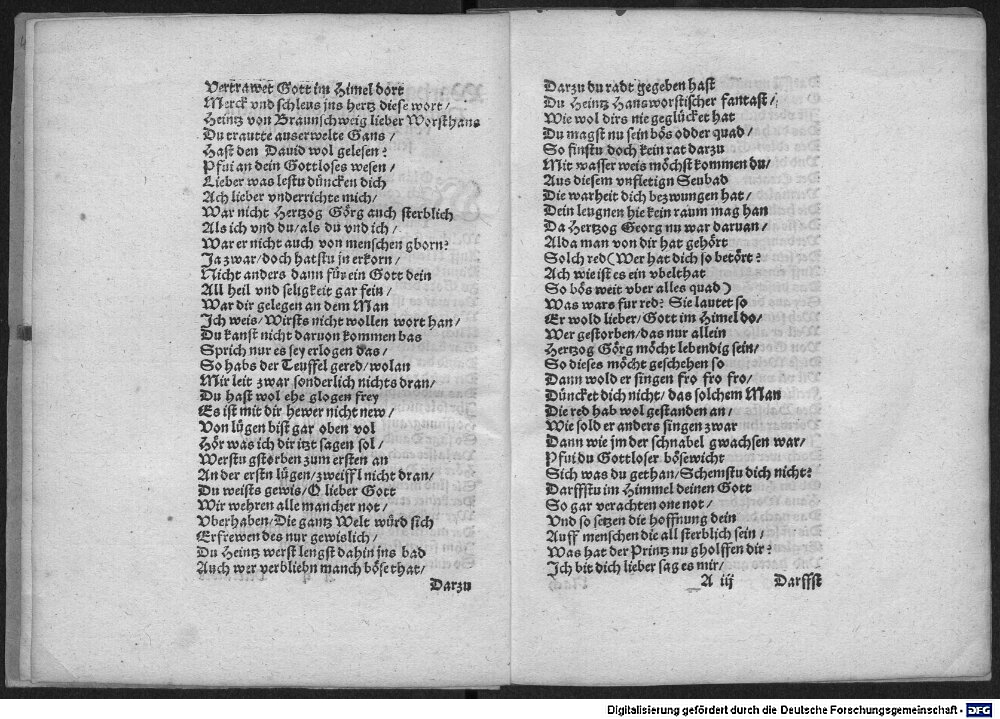 Vertrawet Gott im Himel dort
Merck vnd schleus jns hertz diese wort /
Heintz von Braunschweig lieber Worsthans
Du trautte auserwelte Gans /
Hast den Dauid wol gelesen?
Pfui an dein Gottloses wesen /
Lieber was lestu düncken dich
Ach lieber vnderrichte mich /
War nicht Hertzog Görg auch sterblich
Als ich vnd du / als du vnd ich /
War er nicht auch von menschen gborn?
Ja zwar / doch hatstu jn erkorn /
Nicht anders dann für ein Gott dein
All heil vnd seligkeit gar fein /
War dir gelegen an dem Man
Ich weis / Wirsts nicht wollen wort han /
Du kanst nicht daruon kommen bas
Sprich nur es sey erlogen das /
So habs der Teuffel gered / wolan
Mir leit zwar sonderlich nichts dran /
Du hast wol ehe glogen frey
Es ist mit dir hewer nicht new /
Von lügen bist gar oben vol
Hör was ich dir itzt sagen sol /
Werstu gstorben zum ersten an
An der erstn lügen / zweiffl nicht dran /
Du weists gewis / O lieber Gott
Wir wehren alle mancher not /
Vberhaben / Die gantz Welt würd sich
Erfrewen des nur gewislich /
Du Heintz werst lengst dahin jns bad
Auch wer verbliehn manch böse that /
Darzu
Darzu du radt gegeben hast
Du Heintz Hansworstischer fantast /
Wie wol dirs nie geglücket hat
Du magst nu sein bös odder quad /
So finstu doch kein rat darzu
Mit wasser weis möchst kommen du /
Aus diesem vnfletign Seubad
Die warheit dich bezwungen hat /
Dein leugnen hie kein raum mag han
Da Hertzog Georg nu war daruan /
Alda man von dir hat gehört
Solch red (Wer hat dich so betört?
Ach wie ist es ein vbelthat
So bös weit vber alles quad)
Was wars fur red? Sie lautet so
Er wold lieber / Gott im Himel do /
Wer gestorben / das nur allein
Hertzog Görg möcht lebendig sein /
So dieses möcht geschehen so
Dann wold er singen fro fro fro /
Düncket dich nicht / das solchem Man
Die red hab wol gestanden an /
Wie sold er anders singen zwar
Dann wie jm der schnabel gwachsen war /
Pfui du Gottloser bösewicht
Sich was du gethan / Schemstu dich nicht?
Darffstu im Himmel deinen Gott
So gar verachten one not /
Vnd so setzen die hoffnung dein
Auff menschen die all sterblich sein /
Was hat der Printz nu gholffen dir?
Ich bit dich lieber sag es mir /
A iij Darffst
Digitalisierung gefördert durch die Deutsche Forschungsgemeinschaft - DFG